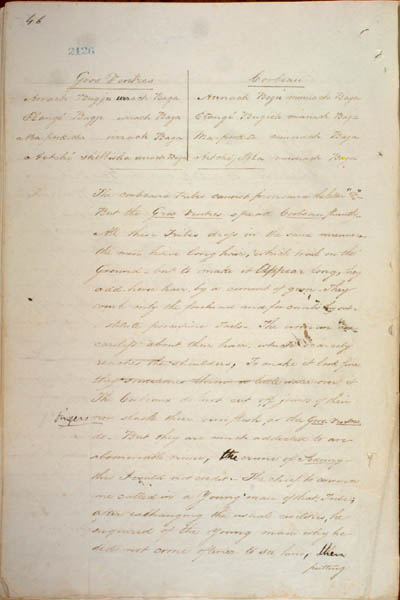 46
2126
Gros Ventres
Corbeau
Amach Bugje umach Baga
Amach Bojé munach Baga
Etangé Bugje umach Baga
Etangé Bugich manach Baga
Ma parkida umach Baga
Ma parkida umnach Baga
The Corbeaus Tribes cannot pronounce the letter
But the Gros Ventres speak Corbeau fluently
All these Tribes dress in the same manner
the men have long hair, which trail on the
Ground - but to make it Appear long, they
add horse hair, by a cement of gum. They
comb only the forehead and
The women
careless about their hair, which scarcely
reaches the shoulders, To make it look fine
they
The Corbeaus do not cut off joints of their
fingers nor slash their own flesh, as the Gros Ventres
do. But they are much addicted to an
abominable crime, the crime of
this I would not credit. The chief to convince
me called in a Young man of that Tribe;
after exchanging the usual civilities, he
enquired of the Young man why he
did not come oftener to see him, then
putting